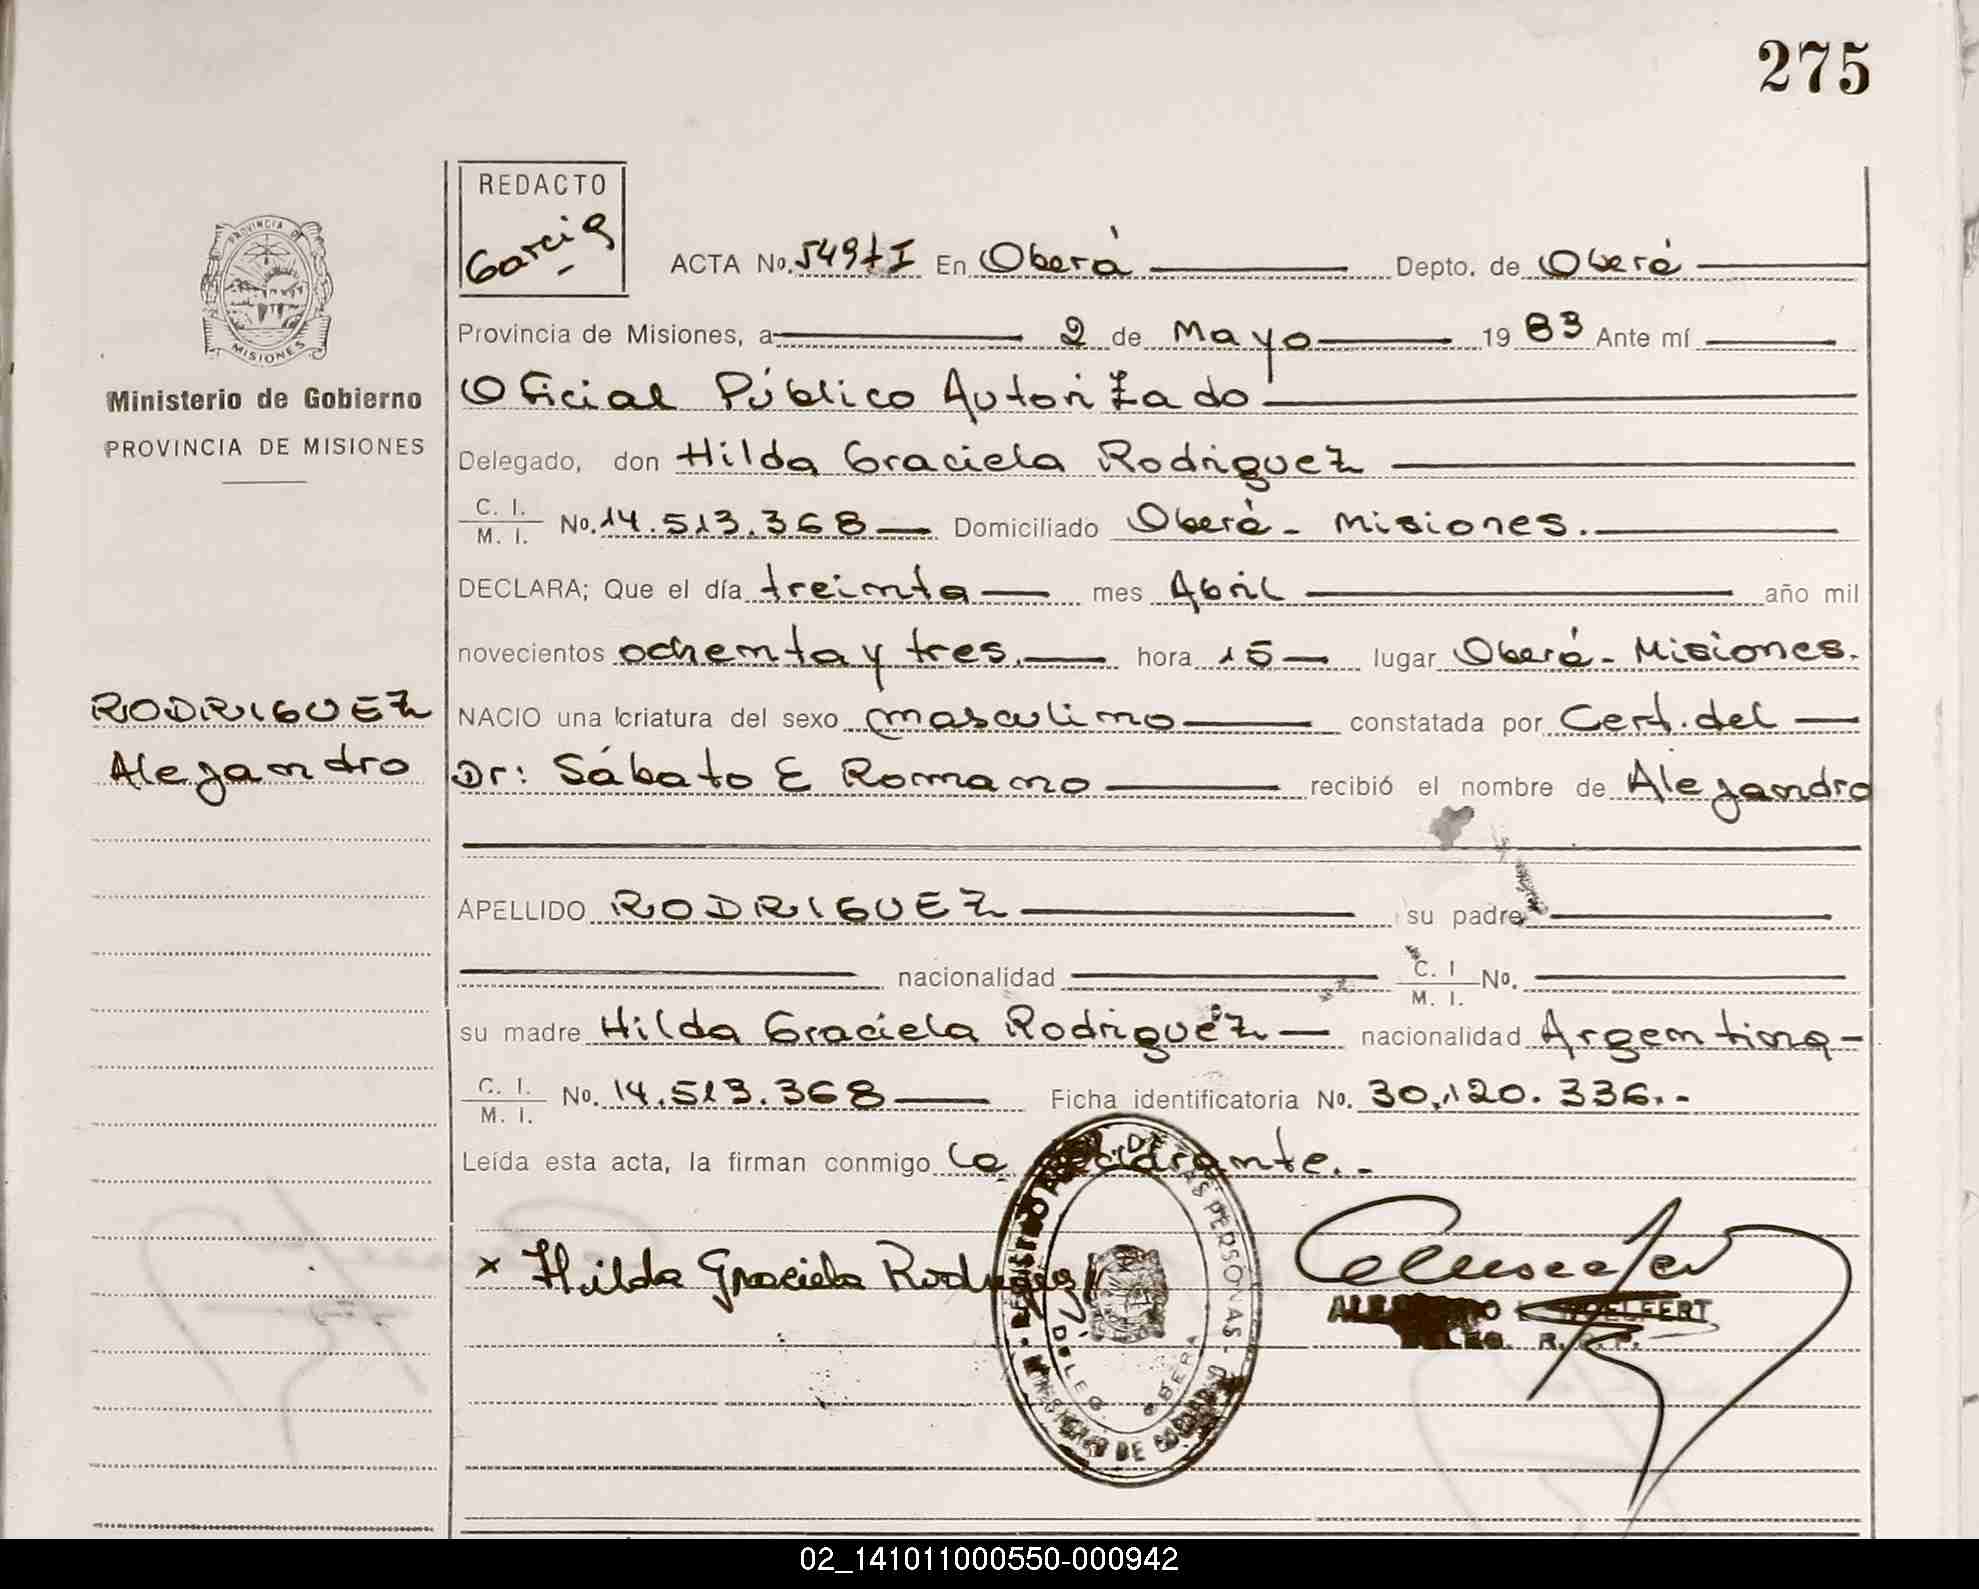 275
REDACTO
Garcia
ACTA No. 549 t I En Oberá Depto. de Oberá
PROVINCIA DE
MISIONES
Provincia de Misiones, a 2 de Mayo 1983 Ante mí
Ministerio de Gobierno
PROVINCIA DE MISIONES
Oficial Público Autorizado
Delegado, don Hilda Graciela Rodriguez
C. I.
M. I. No. 14.513.368 Domiciliado Oberá - Misiones.
DECLARA; Que el día treinta mes Abril año mil
novecientos ochenta y tres. hora 15 lugar Oberá - Misiones.
RODRIGUEZ
Alejandro
NACIO una criatura del sexo masculino constatada por Cert. del
Dr: Sábato E Romano recibió el nombre de Alejandro
APELLIDO RODRIGUEZ su padre
nacionalidad C. I. M. I. No.
su madre Hilda Graciela Rodriguez nacionalidad Argentina -
C. I.
M. I. No. 14.513.368 Ficha identificatoria No. 30.120.336.-
Leída esta acta, la firman conmigo la declarante.-
x Hilda Graciela Rodriguez
DE LAS PERSONAS
DELEG. R. P.
02_141011000550-000942